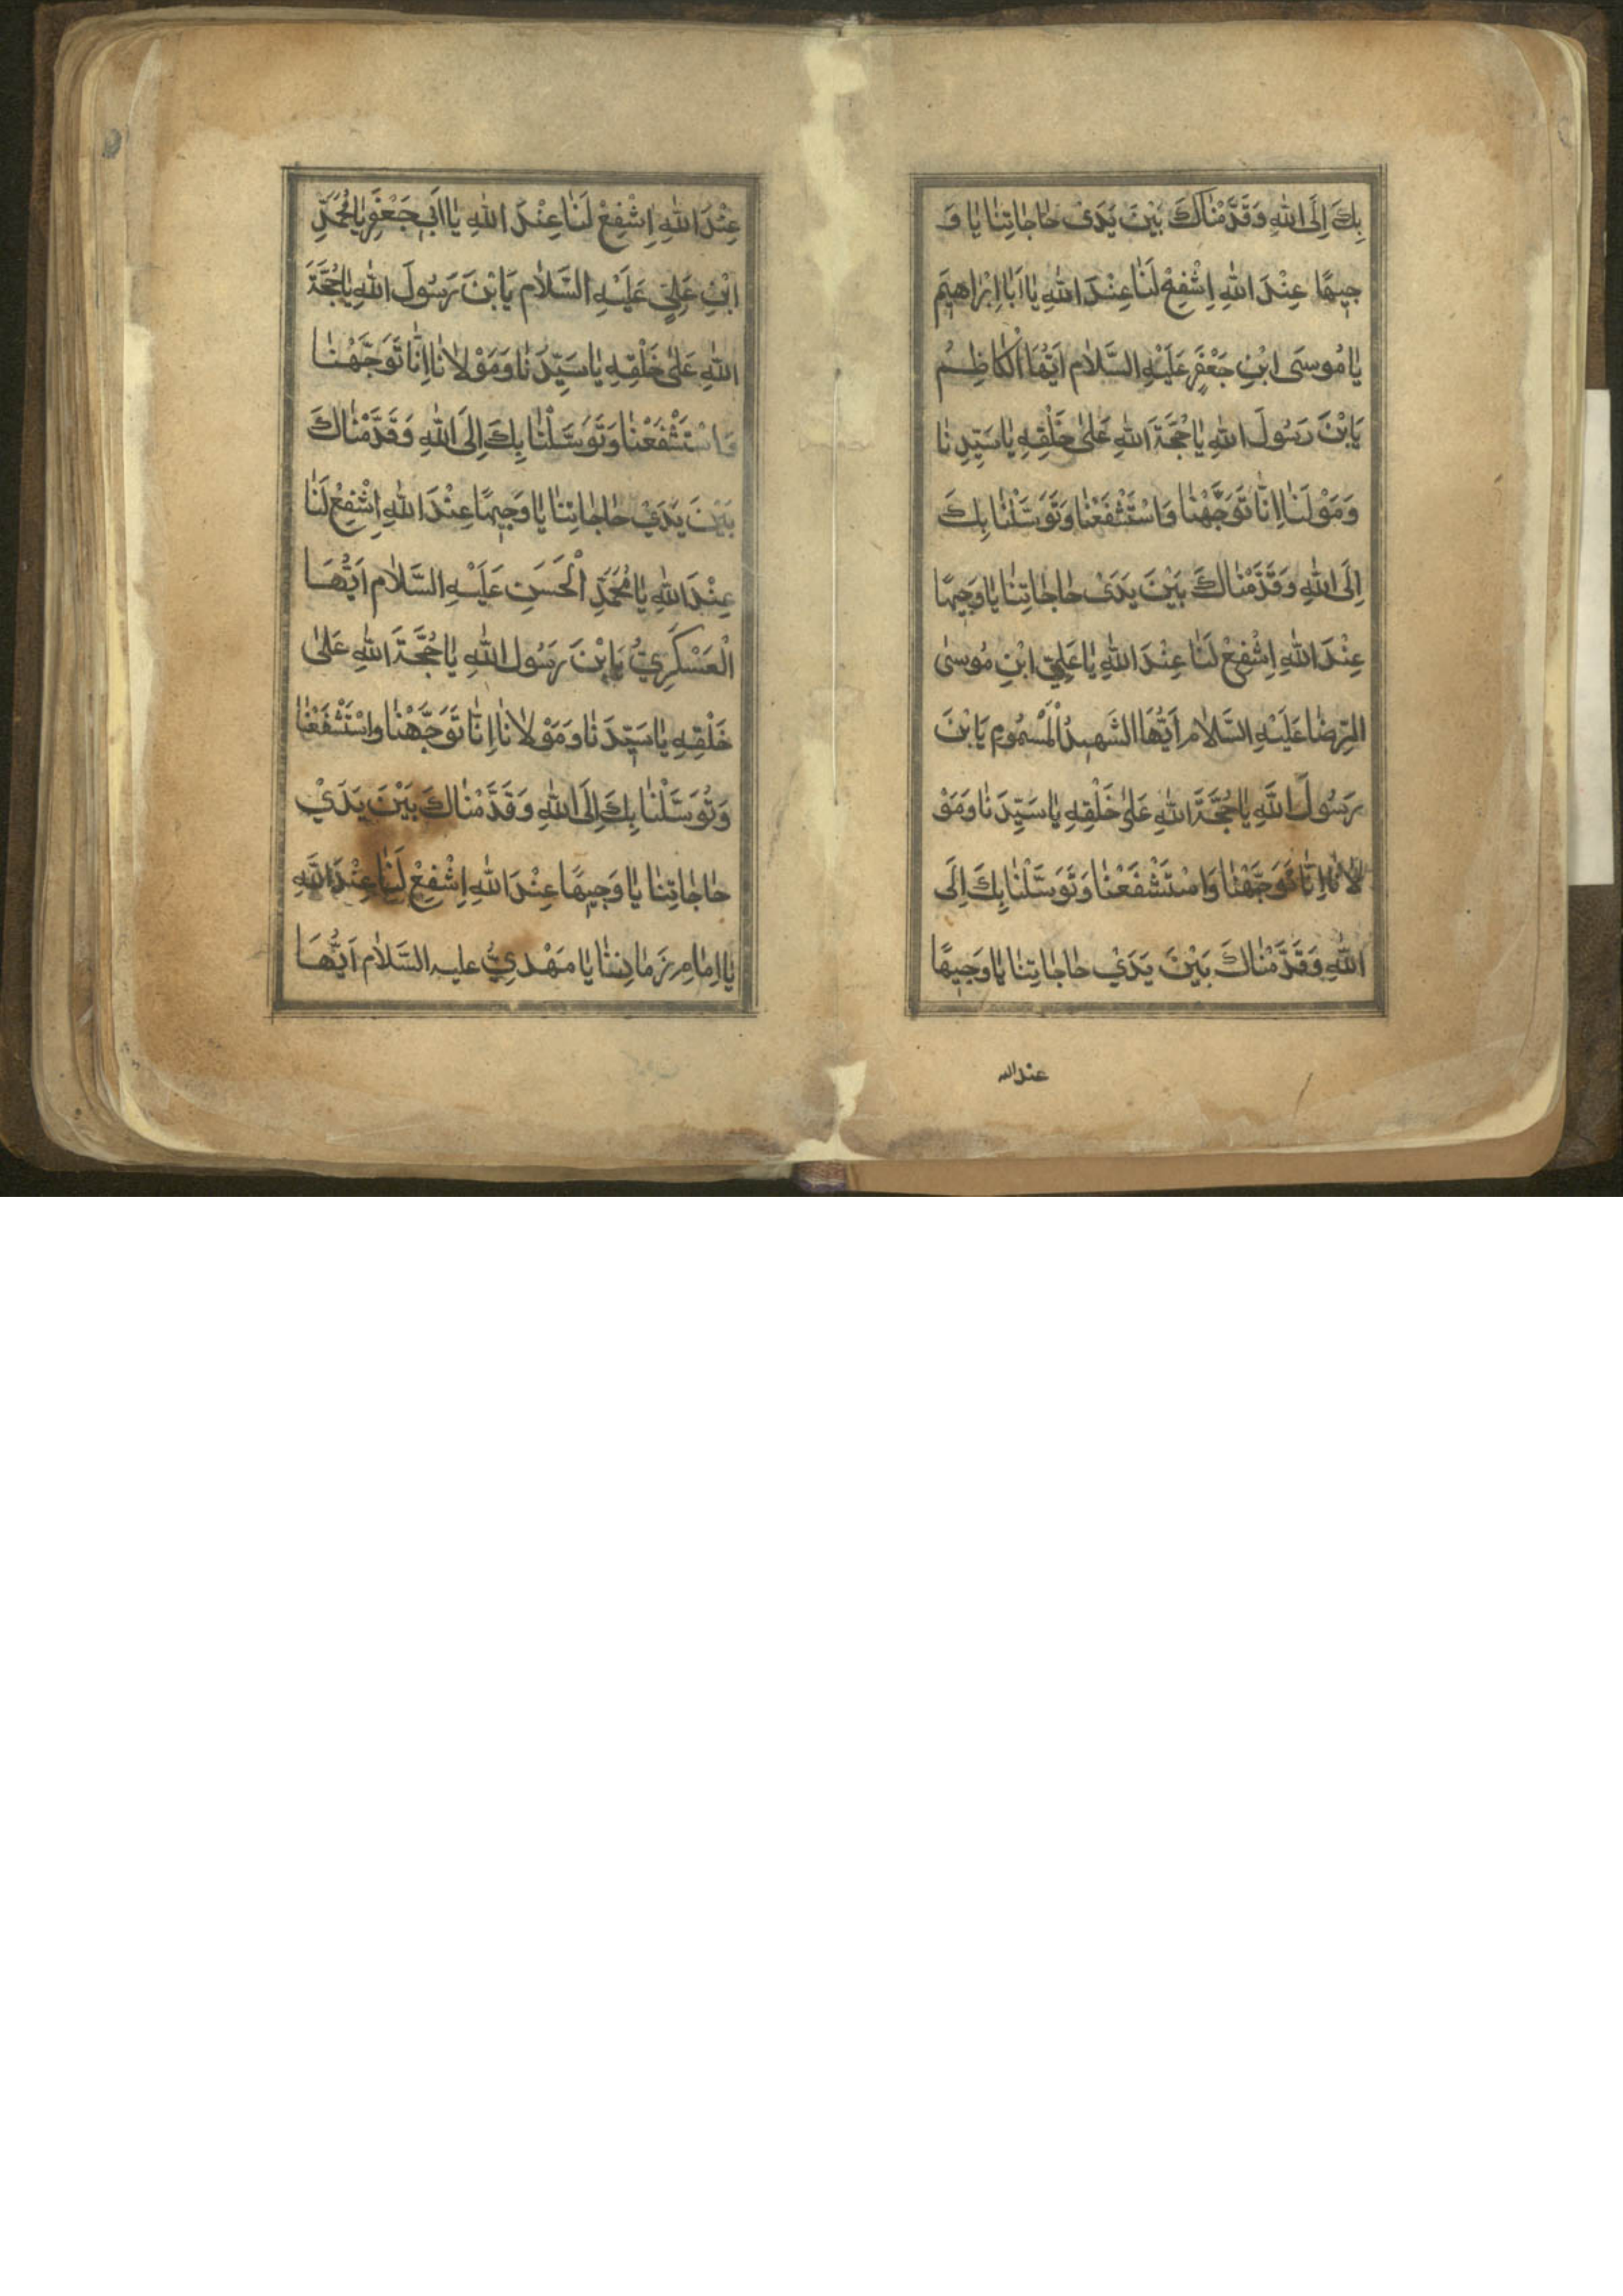 بِكَ اِلَى اللهِ وَقَدَّمْنٰاكَ بَيْنَ يَدَىْ حٰاجٰاتِنٰا يٰا وَ
جِيهًا عِنْدَ اللهِ اِشْفِعْ لَنٰا عِنْدَ اللهِ يٰا اَبٰا اِبْرٰاهِيْمَ
يٰا مُوسَى ابْنِ جَعْفَرٍ عَلَيْهِ السَّلٰام اَيُّهَا الْكٰاظِمُ
يَابْنَ رَسُولَ اللهِ يٰا حُجَّةَ اللهِ عَلىٰ خَلْقِهِ يٰا سَيِّدِنٰا
وَمَوْلَنٰا اِنّٰا تَوَجَّهْنٰا وَاسْتَشْفَعْنٰا وَتَوَسَّلْنٰا بِكَ
اِلَى اللهِ وَقَدَّمْنٰاكَ بَيْنَ يَدَىْ حٰاجٰاتِنٰا يٰا وَجِيهًا
عِنْدَ اللهِ اِشْفِعْ لَنٰا عِنْدَ اللهِ يٰا عَلِيّ ابْنِ مُوسىٰ
الرِّضٰا عَلَيْهِ السَّلٰام اَيُّهَا الشَّهِيدُ الْمَسْمُوم يَابْنَ
رَسُولَ اللهِ يٰا حُجَّةَ اللهِ عَلىٰ خَلْقِهِ يٰا سَيِّدَنٰا وَمَوْ
لاٰنٰا اِنّٰا تَوَجَّهْنٰا وَاسْتَشْفَعْنٰا وَتَوَسَّلْنٰا بِكَ اِلَى
اللهِ وَقَدَّمْنٰاكَ بَيْنَ يَدَيْ حٰاجٰاتِنٰا يٰا وَجِيهًا
عند الله
عِنْدَ اللهِ اِشْفِعْ لَنٰا عِنْدَ اللهِ يٰا اَبِي جَعْفَرِ يٰا مُحَمَّدِ
ابْنِ عَلِيٍّ عَلَيْهِ السَّلٰام يَابْنَ رَسُولَ اللهِ يٰا حُجَّةَ
اللهِ عَلىٰ خَلْقِهِ يٰا سَيِّدَنٰا وَمَوْلاٰنٰا اِنّٰا تَوَجَّهْنٰا
وَاسْتَشْفَعْنٰا وَتَوَسَّلْنٰا بِكَ اِلَى اللهِ وَقَدَّمْنٰاكَ
بَيْنَ يَدَيْ حٰاجٰاتِنٰا يٰا وَجِيهًا عِنْدَ اللهِ اِشْفِعْ لَنٰا
عِنْدَ اللهِ يٰا مُحَمَّدِ الْحَسَنِ عَلَيْهِ السَّلٰام اَيُّهَا
الْعَسْكَرِيُّ يَابْنَ رَسُولَ اللهِ يٰا حُجَّةَ اللهِ عَلىٰ
خَلْقِهِ يٰا سَيِّدَنٰا وَمَوْلاٰنٰا اِنّٰا تَوَجَّهْنٰا وَاسْتَشْفَعْنٰا
وَتَوَسَّلْنٰا بِكَ اِلَى اللهِ وَقَدَّمْنٰاكَ بَيْنَ يَدَيْ
حٰاجٰاتِنٰا يٰا وَجِيهًا عِنْدَ اللهِ اِشْفِعْ لَنٰا عِنْدَ اللهِ
يٰا اِمٰامِ زَمٰانِنٰا يٰا مَهْدِيُّ عليه السَّلٰام اَيُّهَا